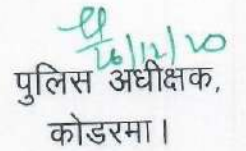 26/12/20
पुलिस अधीक्षक,
कोडरमा।